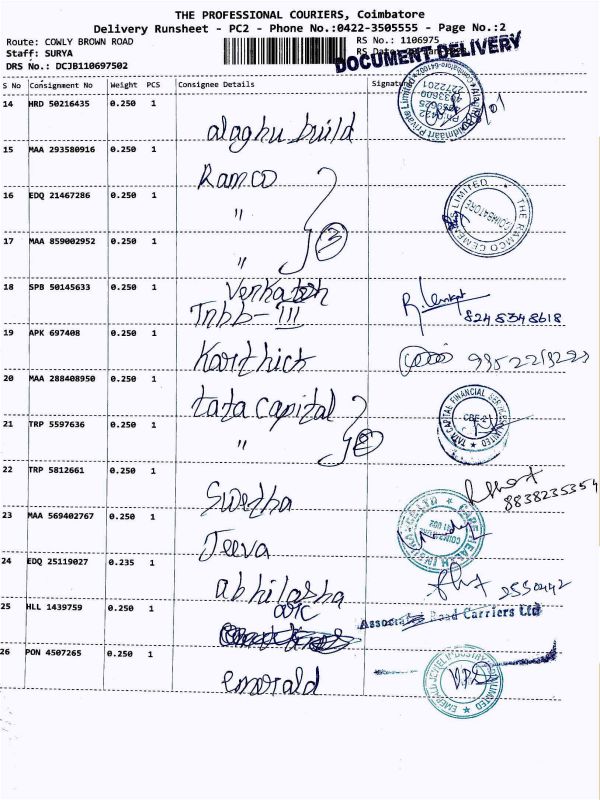 THE PROFESSIONAL COURIERS, Coimbatore
Delivery Runsheet - PC2 - Phone No.:0422-3505555 - Page No.:2
Route: COWLY BROWN ROAD
RS No.: 1106975
Staff: SURYA
DOCUMENT DELIVERY
DRS No.: DCJB110697502
S No Consignment No Weight PCS Consignee Details
14 HRD 50216435 0.250 1 alaghu build
15 MAA 293580916 0.250 1 Ramco
16 EDQ 21467286 0.250 1 "
THE RAMCO CEMENTS LIMITED COIMBATORE
17 MAA 859002952 0.250 1 " 3
18 SPB 50145633 0.250 1 Venkatesh
Tnbb- III
8248348618
19 APK 697408 0.250 1 Karthick
20 MAA 288408950 0.250 1 tata capital
TATA CAPITAL FINANCIAL SERVICES LIMITED
21 TRP 5597636 0.250 1 "
22 TRP 5812661 0.250 1 Swetha
8838235354
23 MAA 569402767 0.250 1 Jeeva
24 EDQ 25119027 0.235 1 abhilasha
25 HLL 1439759 0.250 1 arc
Associated Road Carriers Ltd
26 PON 4507265 0.250 1 emerald
V.P.D